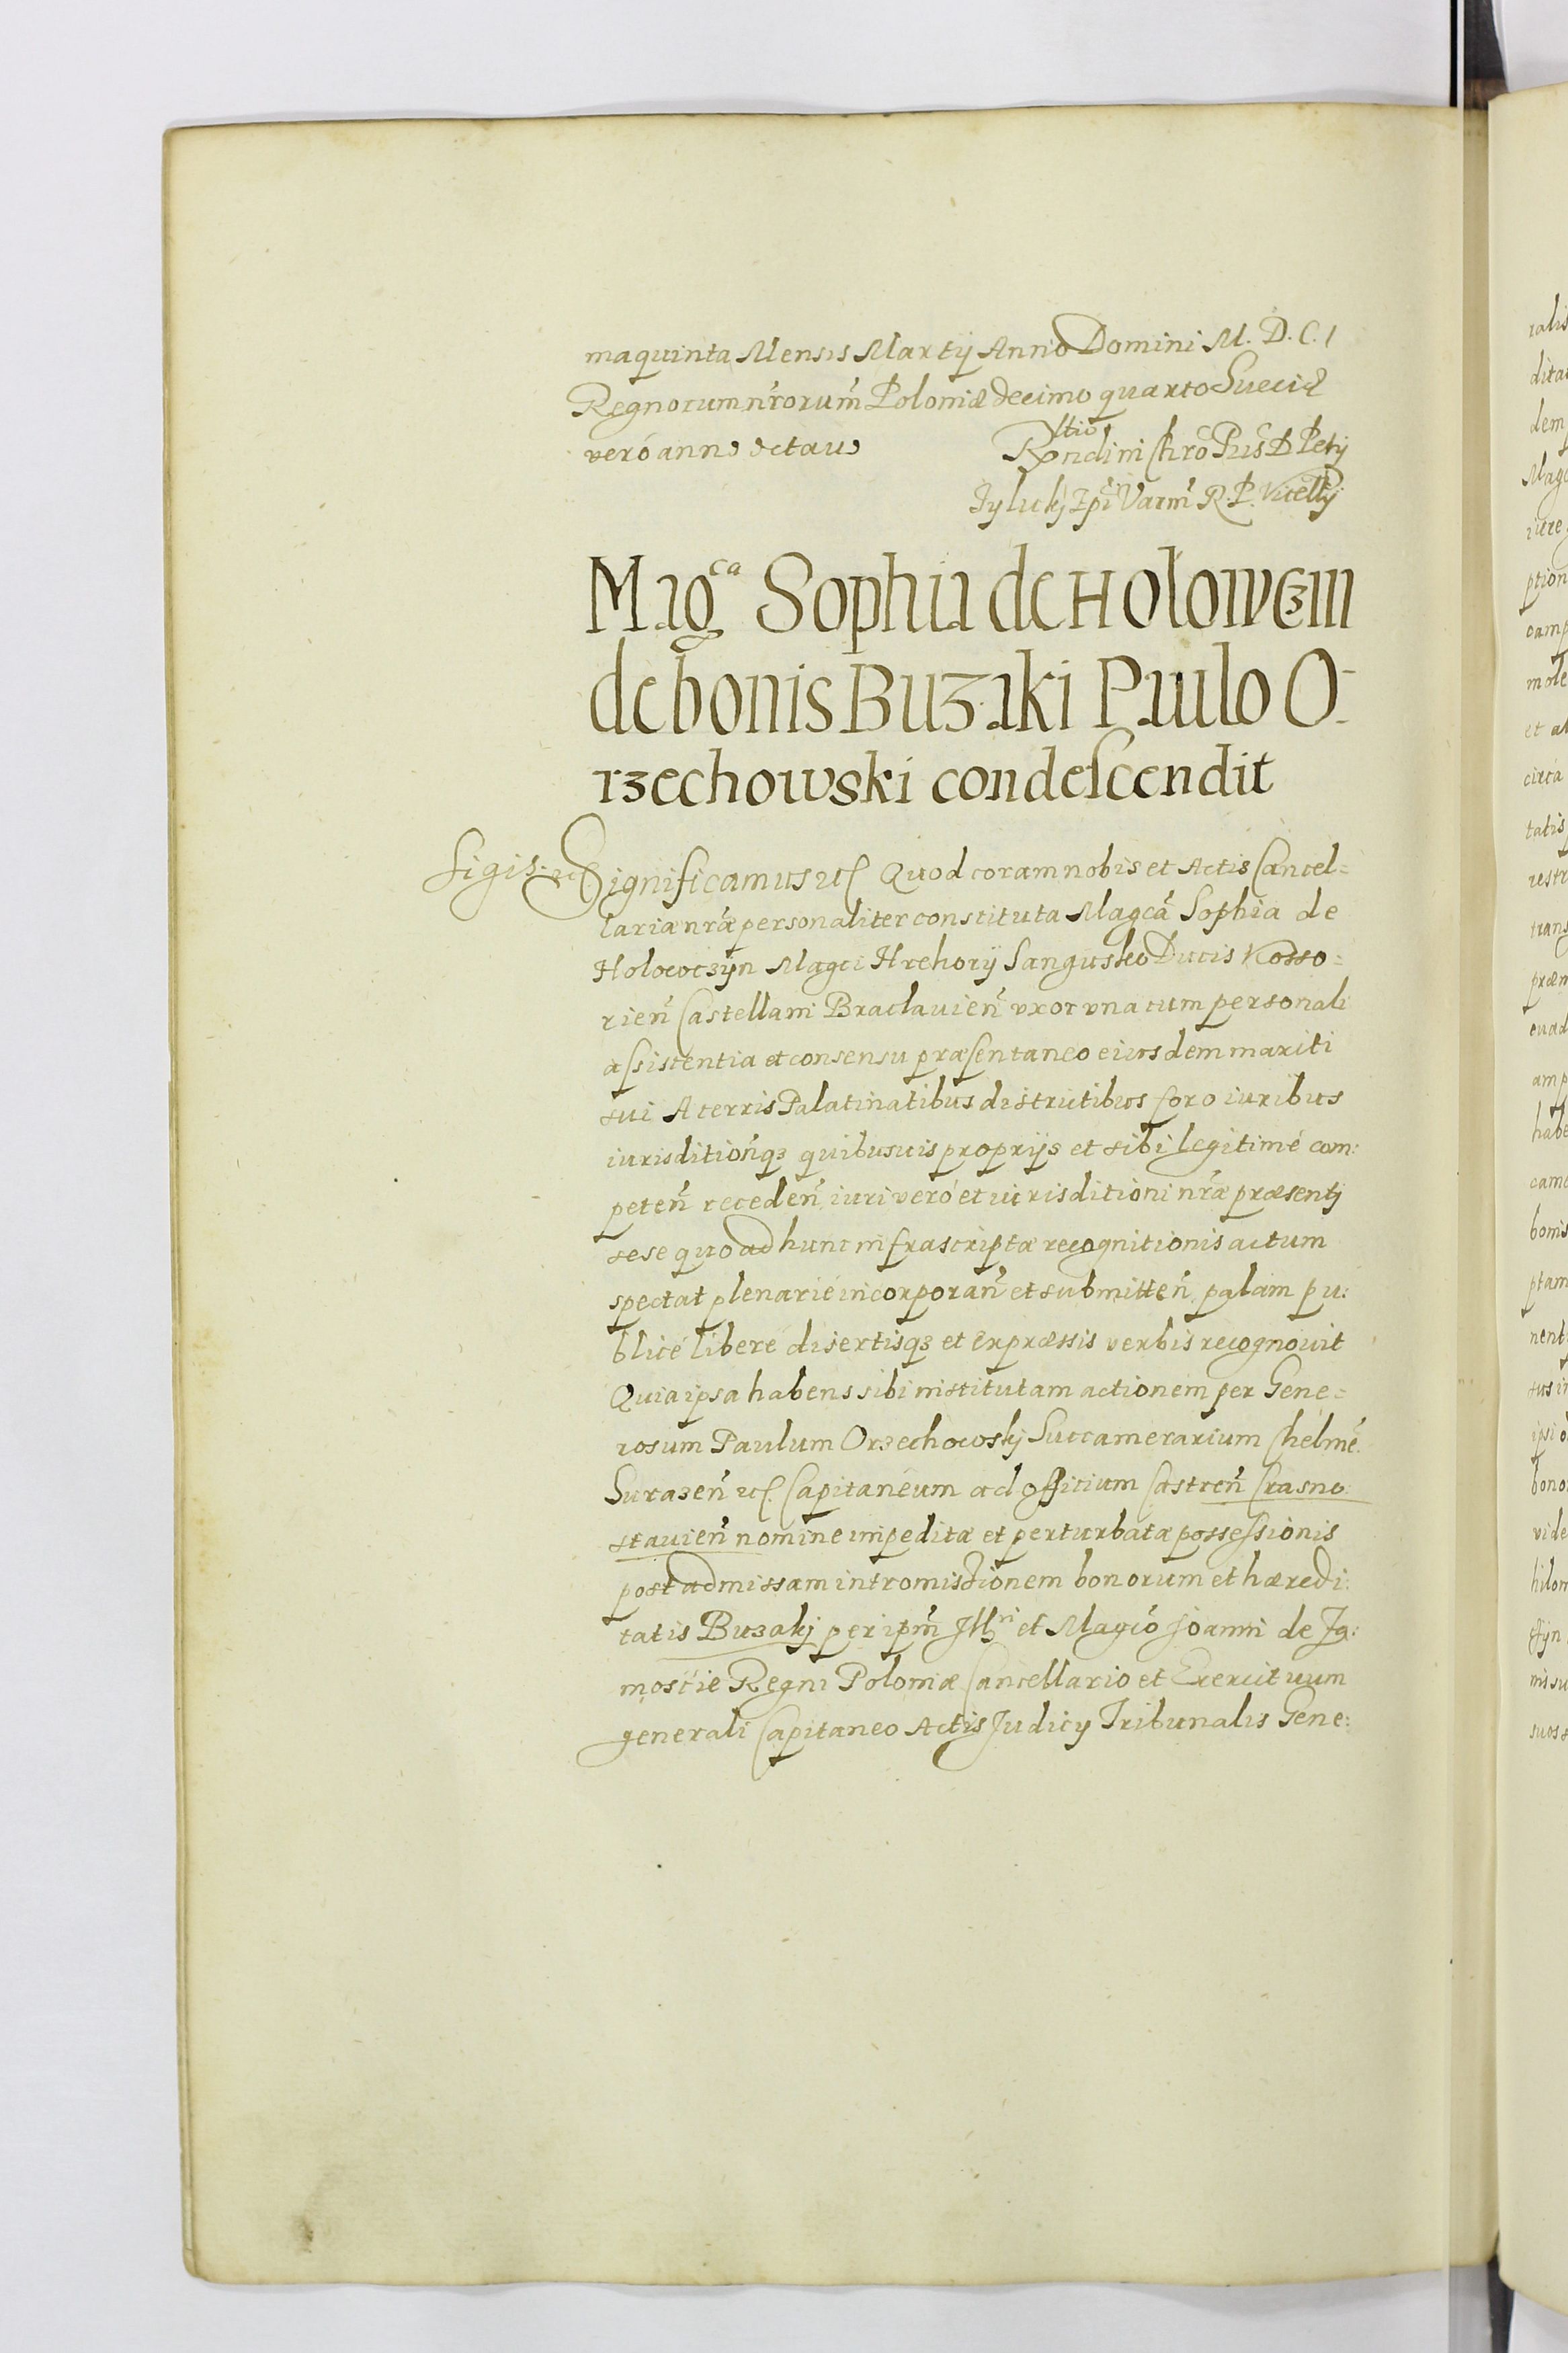 maquinta Mensis Martij Anno Domini M. D. C. I
Regnorum nr̃orum̃ Poloniæ decimo quarto Sueciæ
veró anno octauo
Petrj
Tylickj Ep̃i Varm̃ R. P. Vicecllrij
Mag^ca Sophia de Holowczin
de bonis Buzaki Paulo O-
rzechowski condeſcendit
Sigis: etc Significamus etc Quod coram nobis et Actis Cancel=
lariæ nr̃æ personaliter constituta Magcã Sophia de
Holowczijn Magci Hrehorij Sangusko Ducis Kosso=
rien̄ Castellani Braclauien̄ vxor vna cum personali
aſsistentia et consensu præſentaneo eiusdem mariti
sui A terris Palatinatibus districtibus foro iuribus
iurisditioñqꝫ quibusuis proprijs et sibi legitimé com:
peteñ recedeñ iuri veró et iurisditioni nr̃æ præsentj
sese quo ad hunc infrascriptæ recognitionis actum
spectat plenarié incorporañ et submitteñ palam pu:
blicé liberé disertisqꝫ et Expræssis verbis recognouit
Quia ipsa habens sibi institutam actionem per Gene=
rosum Paulum Orzechowskj Succamerarium Chelmẽ.
Surazeñ etc. Capitaneum ad officium Castreñ Crasno
stauieñ nomine impeditæ et perturbatæ posseſsionis
post admissam intromissionem bonorum et hæredi:
tatis Buzakj per ipm̃ Ill^ri et Magcó Joanni de Za:
moscie Regni Poloniæ Cancellario et Exercituum
generali Capitaneo Actis Judicy Tribunalis Gene: